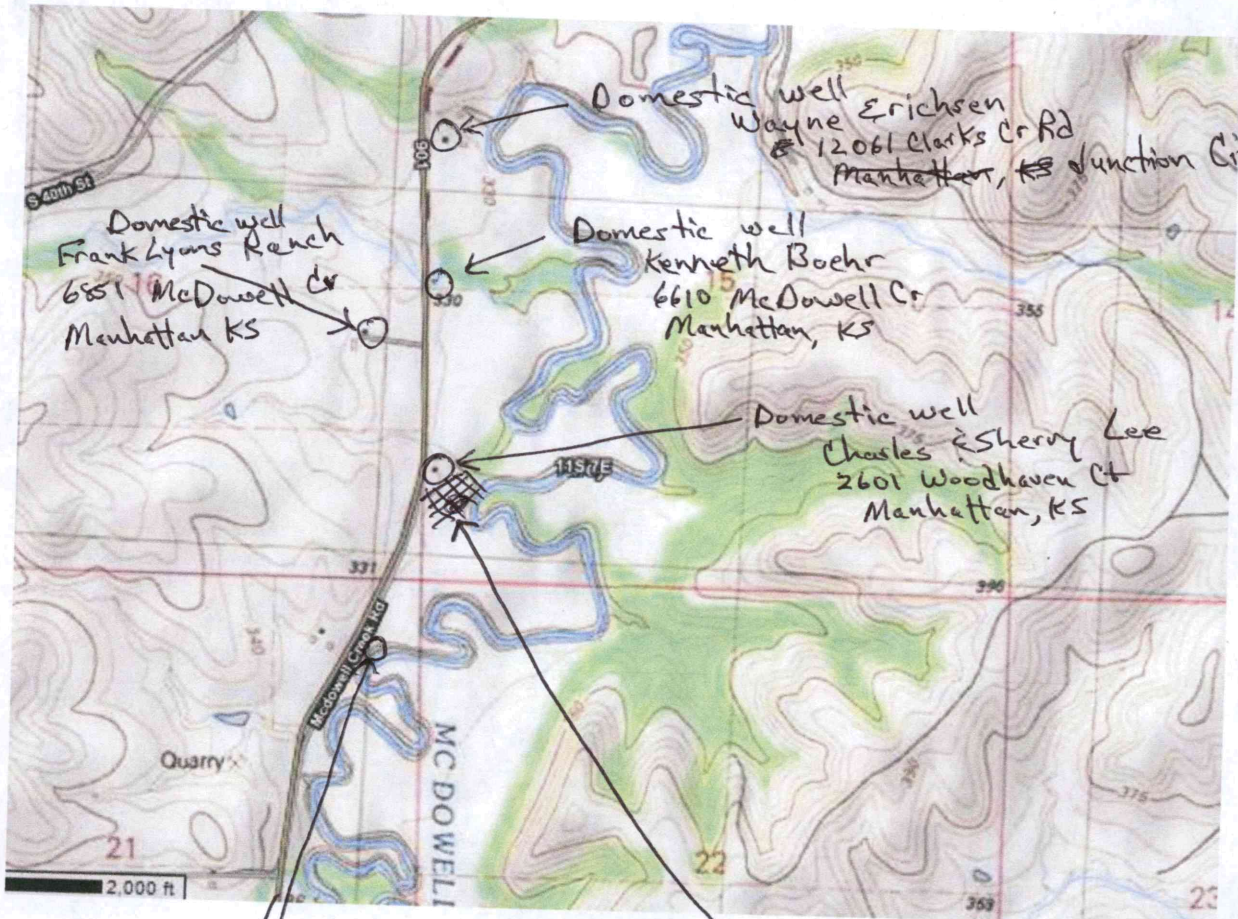 Domestic well
Wayne Erichsen
12061 Clarks Cr Rd
Manhattan, KS Junction
Domestic well
Frank Lyons Ranch
6851 McDowell Cr
Manhattan KS
Domestic well
Kenneth Boehr
6610 McDowell Cr
Manhattan, KS
Domestic well
Charles & Sherry Lee
2601 Woodhaven Ct
Manhattan, KS
S 40th St
901
350
330
16
15
14
330
355
350
375
375
11S 7E
331
396
340
Mcdowell Creek Rd
Quarry
MC DOWELL
350
375
21
22
23
2,000 ft
353